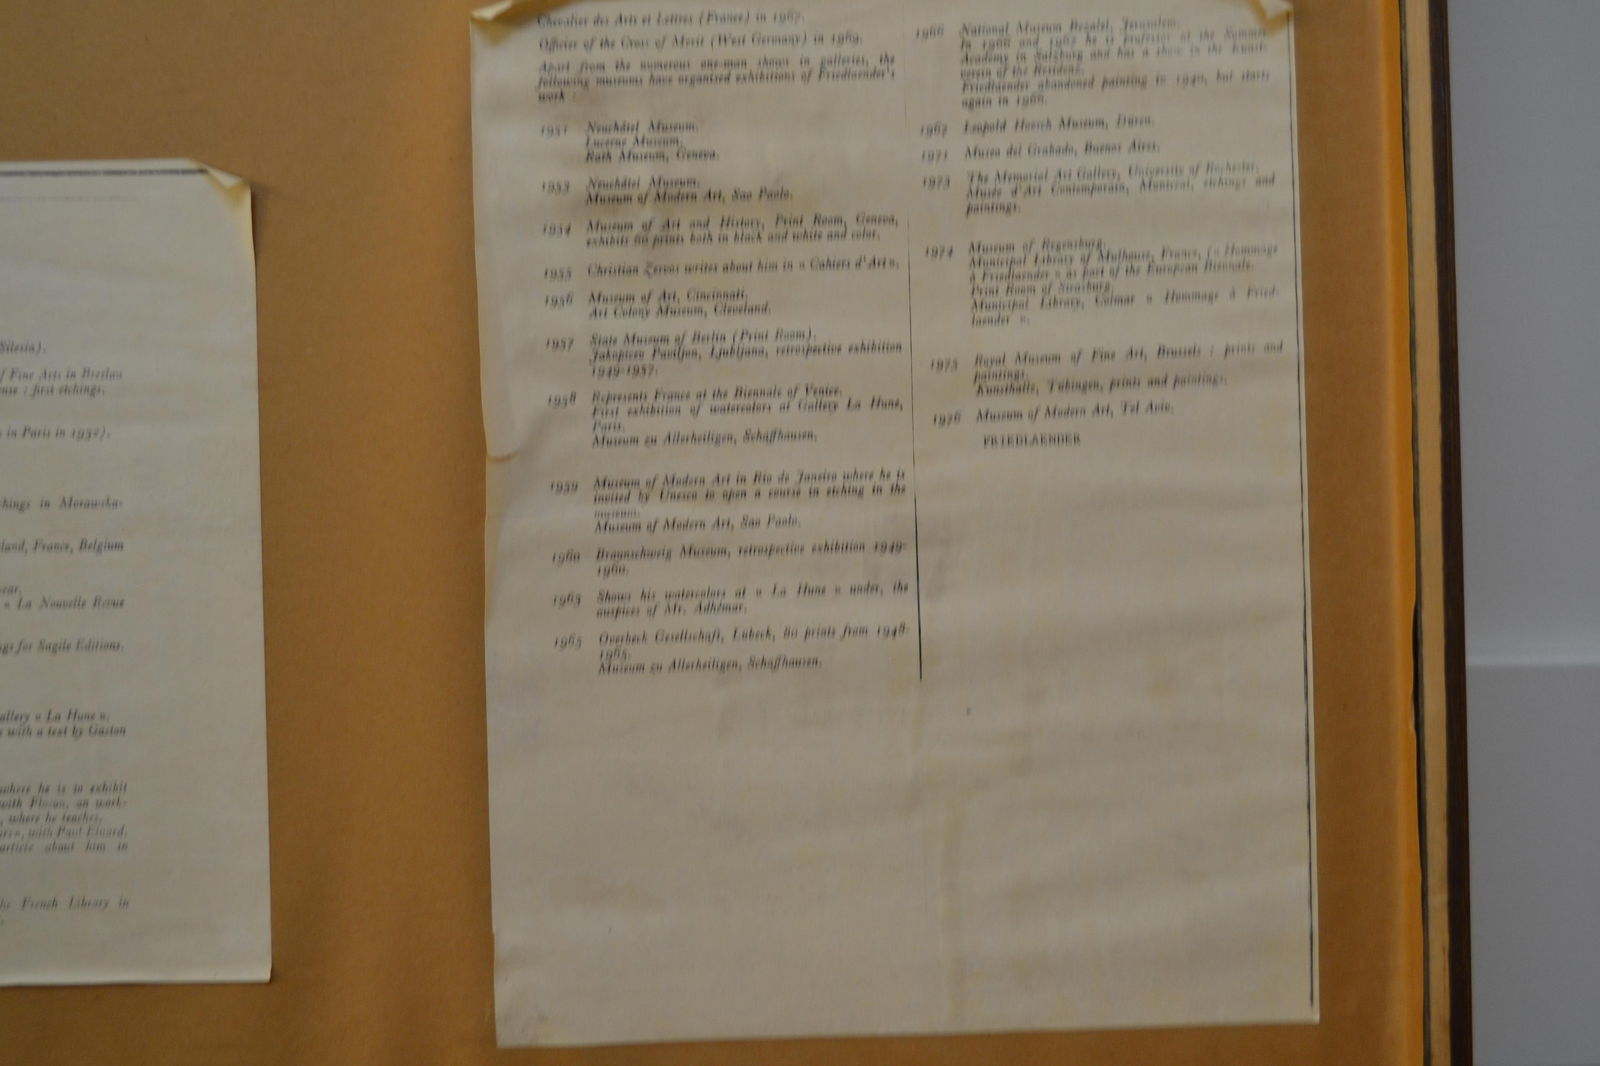 Silesia).
of Fine Arts in Breslau
: first etchings.
in Paris in 1932).
in Morawska-
France, Belgium
« La Nouvelle Revue
for Sagile Editions.
« La Hune ».
with a text by Gaston
where he is to exhibit
with Flocon, an work-
, where he teaches.
with Paul Eluard.
article about him in
the French Library in
Chevalier des Arts et Lettres (France) in 1967.
Officier of the Cross of Merit (West Germany) in 1969.
Apart from the numerous one-man shows in galleries, the
following museums have organised exhibitions of Friedlaender's
work :
1951 Neuchâtel Museum.
Lucerne Museum.
Rath Museum, Geneva.
1953 Neuchâtel Museum.
Museum of Modern Art, Sao Paolo.
1954 Museum of Art and History, Print Room, Geneva,
exhibits 60 prints both in black and white and color.
1955 Christian Zervos writes about him in « Cahiers d'Art ».
1956 Museum of Art, Cincinnati.
Art Colony Museum, Cleveland.
1957 State Museum of Berlin (Print Room).
Jakopicev Paviljon, Ljubljana, retrospective exhibition
1949-1957.
1958 Represents France at the Biennale of Venice.
First exhibition of watercolors at Gallery La Hune,
Paris.
Museum zu Allerheiligen, Schaffhausen.
1959 Museum of Modern Art in Rio de Janeiro where he is
invited by Unesco to open a course in etching in the
museum.
Museum of Modern Art, Sao Paolo.
1960 Braunschweig Museum, retrospective exhibition 1949-
1960.
1963 Shows his watercolors at « La Hune » under, the
auspices of Mr. Adhémar.
1965 Overbeck Gesellschaft, Lübeck, 80 prints from 1948-
1965.
Museum zu Allerheiligen, Schaffhausen.
1966 National Museum Bezalel, Jerusalem.
In 1966 and 1967 he is professor at the Summer
Academy in Salzburg and has a show in the Kunst-
verein of the Residenz.
Friedlaender abandoned painting in 1940, but starts
again in 1966.
1967 Leopold Hoesch Museum, Duren.
1971 Museo del Grabado, Buenos Aires.
1973 The Memorial Art Gallery, University of Rochester.
Musée d'Art Contemporain, Montreal, etchings and
paintings.
1974 Museum of Regensburg.
Municipal Library of Mulhouse, France, (« Hommage
à Friedlaender » as part of the European Biennale.
Print Room of Strasburg.
Municipal Library, Colmar « Hommage à Fried-
laender ».
1975 Royal Museum of Fine Art, Brussels : prints and
paintings.
Kunsthalle, Tubingen, prints and paintings.
1976 Museum of Modern Art, Tel Aviv.
FRIEDLAENDER